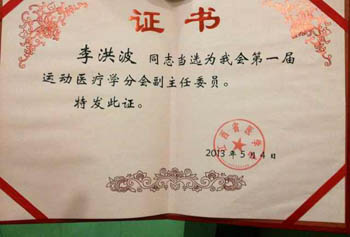 证书
李洪波 同志当选为我会第一届
运动医疗学分会副主任委员。
特发此证。
江西省医学
2013年5月4日